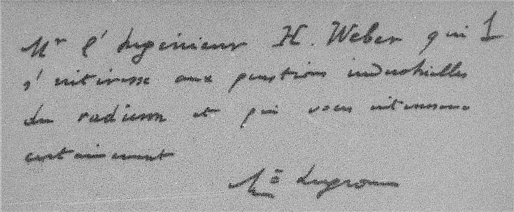 Mr l'Ingénieur H. Weber qui 1
s'intéresse aux questions industrielles
du radium et qui vous intéressera
certainement